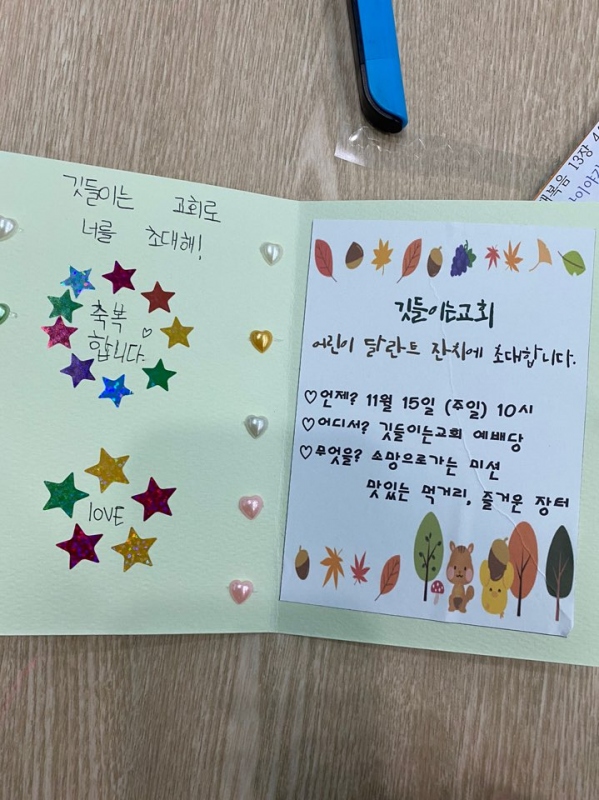 깃들이는 교회로
너를 초대해!
축복
합니다.
love
깃들이는교회
어린이 달란트 잔치에 초대합니다.
♡언제? 11월 15일 (주일) 10시
♡어디서? 깃들이는교회 예배당
♡무엇을? 소망으로가는 미션
맛있는 먹거리, 즐거운 장터
13장